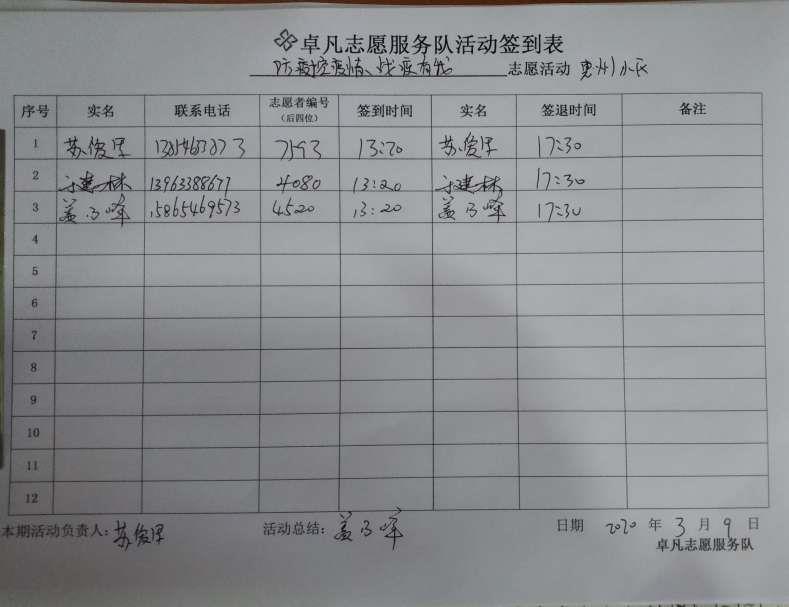 卓凡志愿服务队活动签到表
防疫控疫情、战疫有我 志愿活动 惠州小区
序号 实名 联系电话 志愿者编号(后四位) 签到时间 实名 签退时间 备注
1 苏俊 13:20 苏俊 17:30
2 于建林 13963388677 4080 13:20 于建林 17:30
3 盖 15865469573 4520 13:20 盖 17:30
4
5
6
7
8
9
10
11
12
本期活动负责人: 苏俊 活动总结: 盖 日期 2020 年 3 月 9 日
卓凡志愿服务队